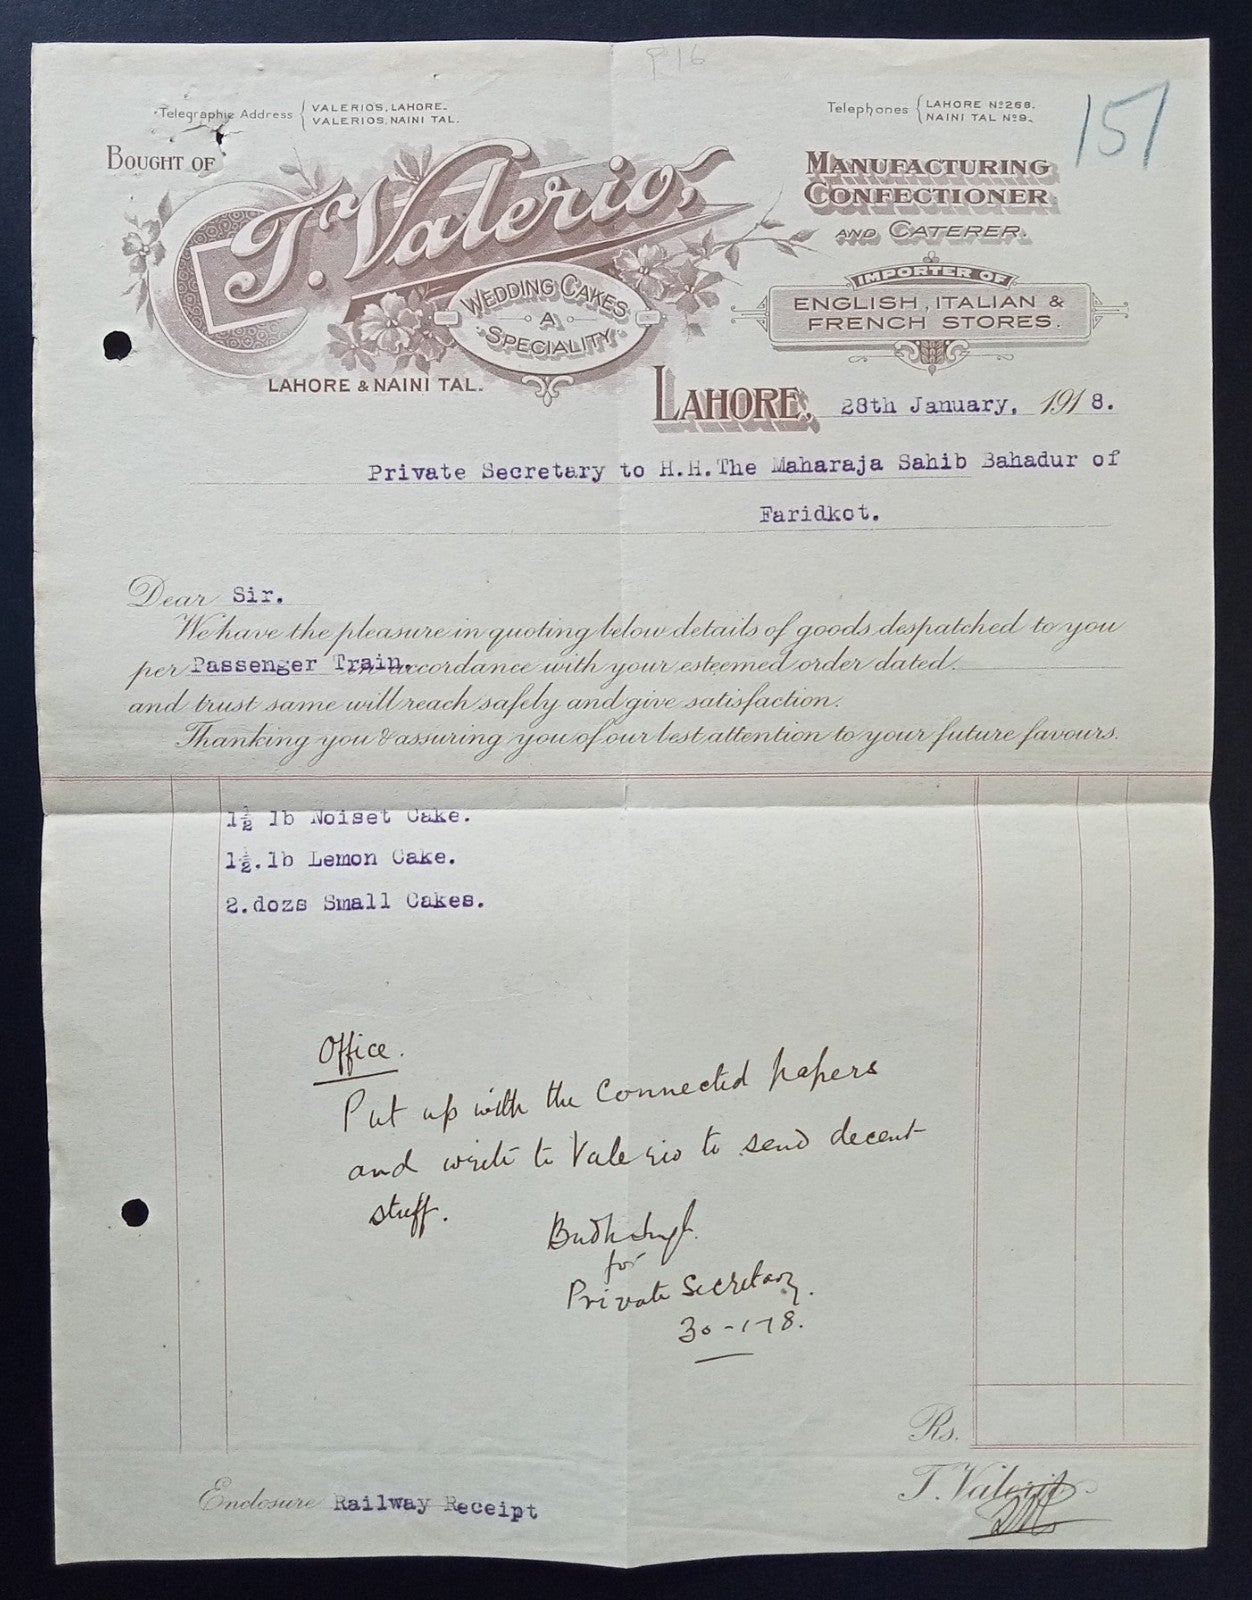 P 16
Telegraphic Address { VALERIO'S, LAHORE.
VALERIOS, NAINI TAL.
Telephones { LAHORE Nº 268.
NAINI TAL Nº 9.
151
BOUGHT OF
T. Valerio,
WEDDING CAKES
A
SPECIALITY.
LAHORE & NAINI TAL.
MANUFACTURING
CONFECTIONER
AND CATERER.
IMPORTER OF
ENGLISH, ITALIAN &
FRENCH STORES.
LAHORE, 28th January, 1918.
Private Secretary to H.H.The Maharaja Sahib Bahadur of
Faridkot.
Dear Sir.
We have the pleasure in quoting below details of goods despatched to you
per Passenger Train. in accordance with your esteemed order dated.
and trust same will reach safely and give satisfaction.
Thanking you & assuring you of our best attention to your future favours.
1½ lb Noiset Cake.
1½.lb Lemon Cake.
2.dozs Small Cakes.
Office.
Put up with the connected papers
and write to Valerio to send decent
stuff.
Budh Singh
for
Private Secretary.
30-1-18.
Rs.
Enclosure Railway Receipt
T. Valerio